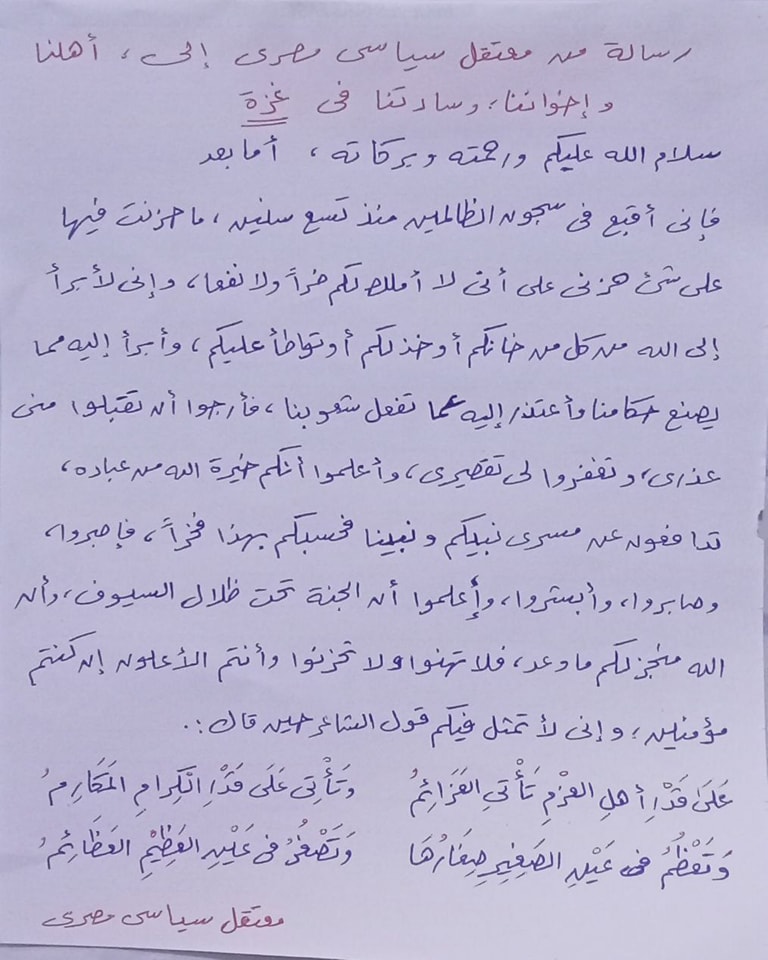 رسالة من معتقل سياسى مصرى إلى، أهلنا
وإخواننا، وسادتنا فى غزة
سلام الله عليكم ورحمته وبركاته، أما بعد
فإنى أقبع فى سجون الظالمين منذ تسع سنين، ما حزنت فيها
على شئ حزنى على أنى لا أملك لكم ضراً ولا نفعا، وإنى لأبرأ
إلى الله من كل من خانكم أو خذلكم أو تواطأ عليكم، وأبرأ إليه مما
يصنع حكامنا وأعتذر إليه عما تفعل شعوبنا، فأرجوا أن تقبلوا منى
عذرى، وتغفروا لى تقصيرى، وأعلموا أنكم خيرة الله من عباده،
تدافعون عن مسرى نبيكم ونبينا فحسبكم بهذا فخراً، فإصبروا،
وصابروا، وأبشروا، وإعلموا أن الجنة تحت ظلال السيوف، وأن
الله منجز لكم ما وعد، فلا تهنوا ولا تحزنوا وأنتم الأعلون إن كنتم
مؤمنين، وإنى لأتمثل فيكم قول الشاعر حين قال:.
عَلَى قَدْرِ أهلِ العَزْمِ تَأْتِي العَزَائِمُ وَتَأْتِى عَلَى قَدْرِ الكِرامِ المَكَارِمُ
وَتَعْظُمُ فى عَيْنِ الصَغِيرِ صِغَارُهَا وَتَصْغُرُ فى عَيْنِ العَظِيْمِ العَظَائِمُ
معتقل سياسى مصرى